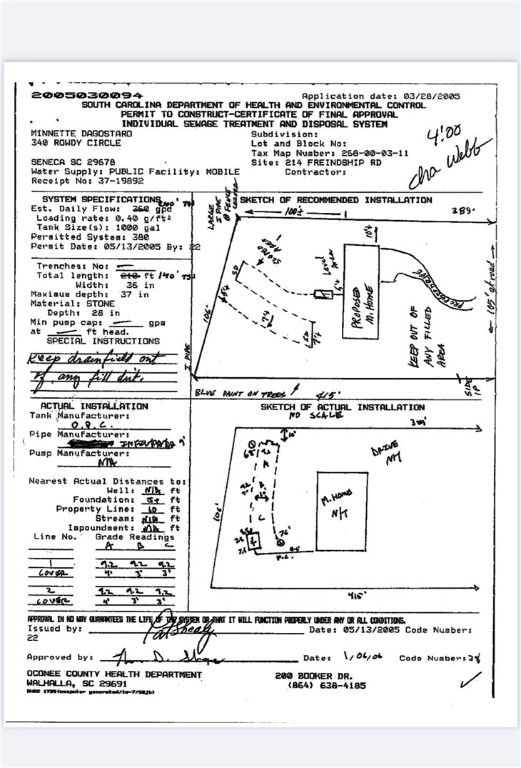 2005030094 Application date: 03/28/2005
SOUTH CAROLINA DEPARTMENT OF HEALTH AND ENVIRONMENTAL CONTROL
PERMIT TO CONSTRUCT-CERTIFICATE OF FINAL APPROVAL
INDIVIDUAL SEWAGE TREATMENT AND DISPOSAL SYSTEM
MINNETTE DAGOSTARO Subdivision:
340 ROWDY CIRCLE Lot and Block No:
Tax Map Number: 258-00-03-11
SENECA SC 29678 Site: 214 FREINDSHIP RD
Water Supply: PUBLIC Facility: MOBILE Contractor:
Receipt No: 37-19892
4:00
Cha Webb
SYSTEM SPECIFICATIONS
Est. Daily Flow: 360 gpd
Loading rate: 0.40 g/ft²
Tank Size(s): 1000 gal
Permitted System: 380
Permit Date: 05/13/2005 By: 22
Trenches: No:
Total length: 210 ft 140'
Width: 36 in
Maximum depth: 37 in
Material: STONE
Depth: 28 in
Min pump cap: gpm
at ft head.
SPECIAL INSTRUCTIONS
Keep drainfield out
of any fill dirt.
SKETCH OF RECOMMENDED INSTALLATION
LARGE I PIPE @ FENCE CORNER
100±
389'
106'
PROPOSED M. HOME
KEEP OUT OF ANY FILLED AREA
I PIPE
BLUE PAINT ON TREES
415'
SIDE IP
ACTUAL INSTALLATION
Tank Manufacturer:
O.P.C.
Pipe Manufacturer:
Pump Manufacturer:
N/A
Nearest Actual Distances to:
Well: N/A ft
Foundation: 5+ ft
Property Line: 10 ft
Stream: N/A ft
Impoundment: N/A ft
Line No. Grade Readings
A B C
1 9.2 9.2 9.2
COVER 4' 3' 3'
2 9.2 9.2 9.2
COVER 4' 3' 3'
SKETCH OF ACTUAL INSTALLATION
NO SCALE
DRIVE
N/I
M. Home
N/I
106'
415'
APPROVAL IN NO WAY GUARANTEES THE LIFE OF THE SYSTEM OR THAT IT WILL FUNCTION PROPERLY UNDER ANY OR ALL CONDITIONS.
Issued by: Date: 05/13/2005 Code Number:
22
Approved by: Date: 1/06/06 Code Number:
OCONEE COUNTY HEALTH DEPARTMENT 200 BOOKER DR.
WALHALLA, SC 29691 (864) 638-4185